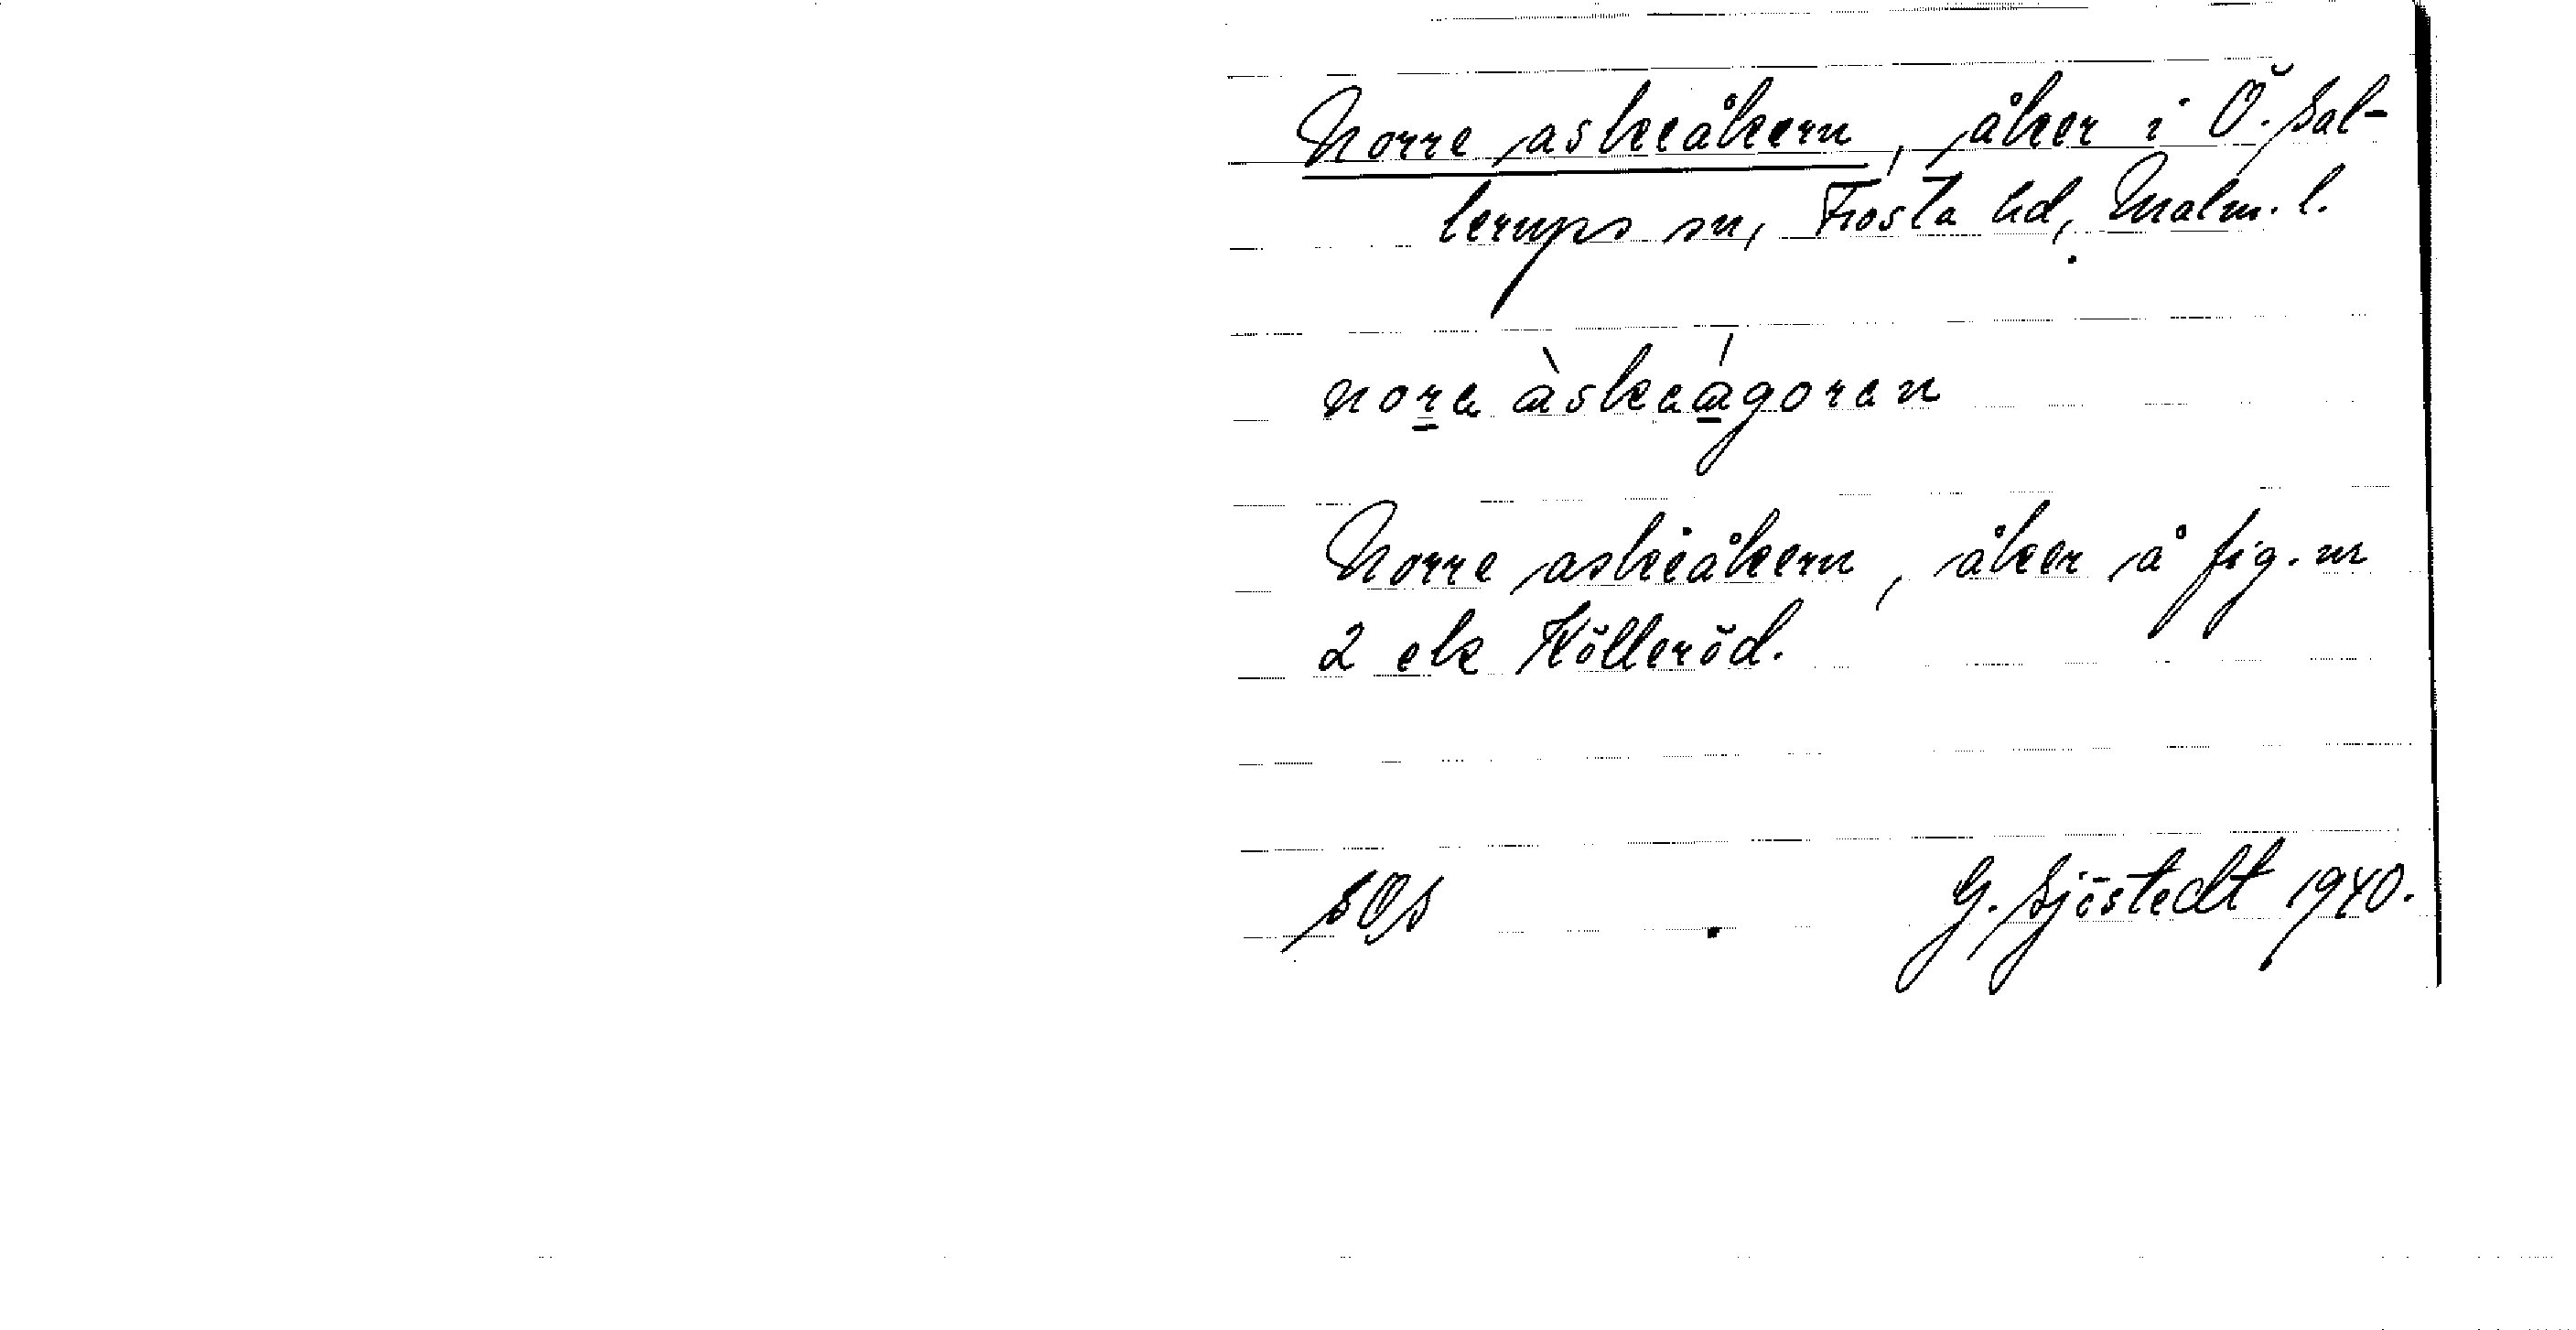 Norre askeåkern, åker i Ö. Sal-
lerups sn, Frosta hd, Malm. l.
nora àskaágoran
Norre askeåkern, åker å fig. nr
2 ek Kölleröd.
SOS G. Sjöstedt 1940.